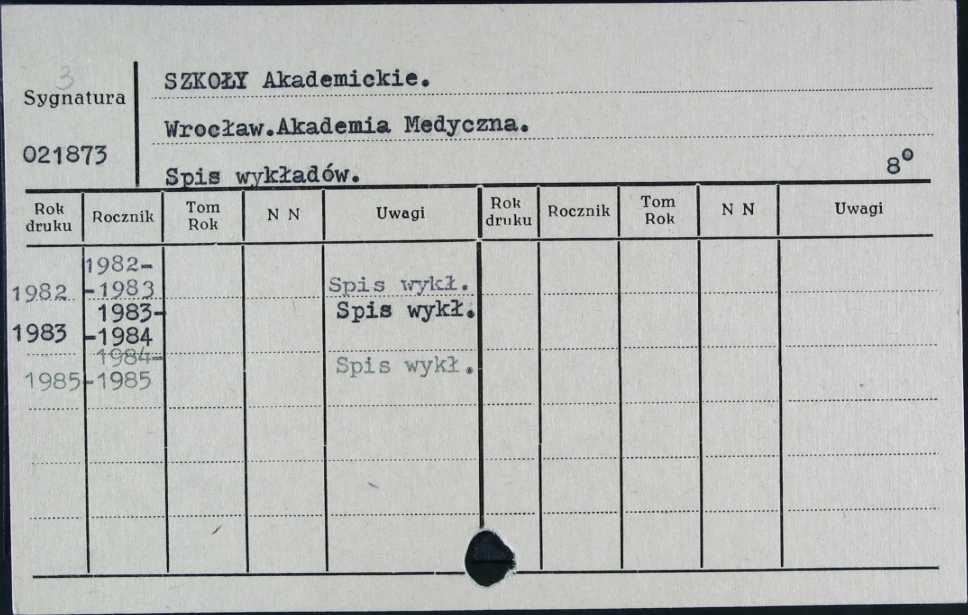 3
SZKOŁY Akademickie.
Sygnatura
Wrocław.Akademia Medyczna.
021873
Spis wykładów. 8°
Rok druku Rocznik Tom Rok N N Uwagi Rok druku Rocznik Tom Rok N N Uwagi
1982-
1982 -1983 Spis wykł.
1983- Spis wykł.
1983 -1984
1984- Spis wykł.
1985 -1985